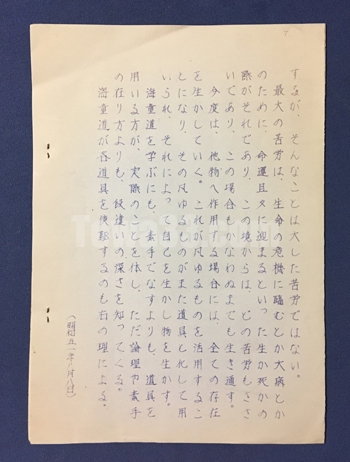 するが、そんなことは大した苦労ではない。
最大の苦労は、生命の危機に臨むとか大病とか
のために、命運旦夕に迫まるといった生か死かの
際がそれであり、この境からは、どの苦労もささ
いであり、この場合もかなわぬまでも生き通す。
今度は、他物へ作用する場合には、全ての存在
を生かしていく。これが凡ゆるものを活用するこ
とになり、その凡ゆるものがまた道具と化して用
いられ、それによって自己を生かし物を生かす。
海童道を学ぶにも、素手でなすよりも、道具を
用いる方が、実際のことを体し、ただ論理や素手
の在り方よりも、段違いの深さを知ってくる。
海童道が各道具を使駆するのも右の理による。